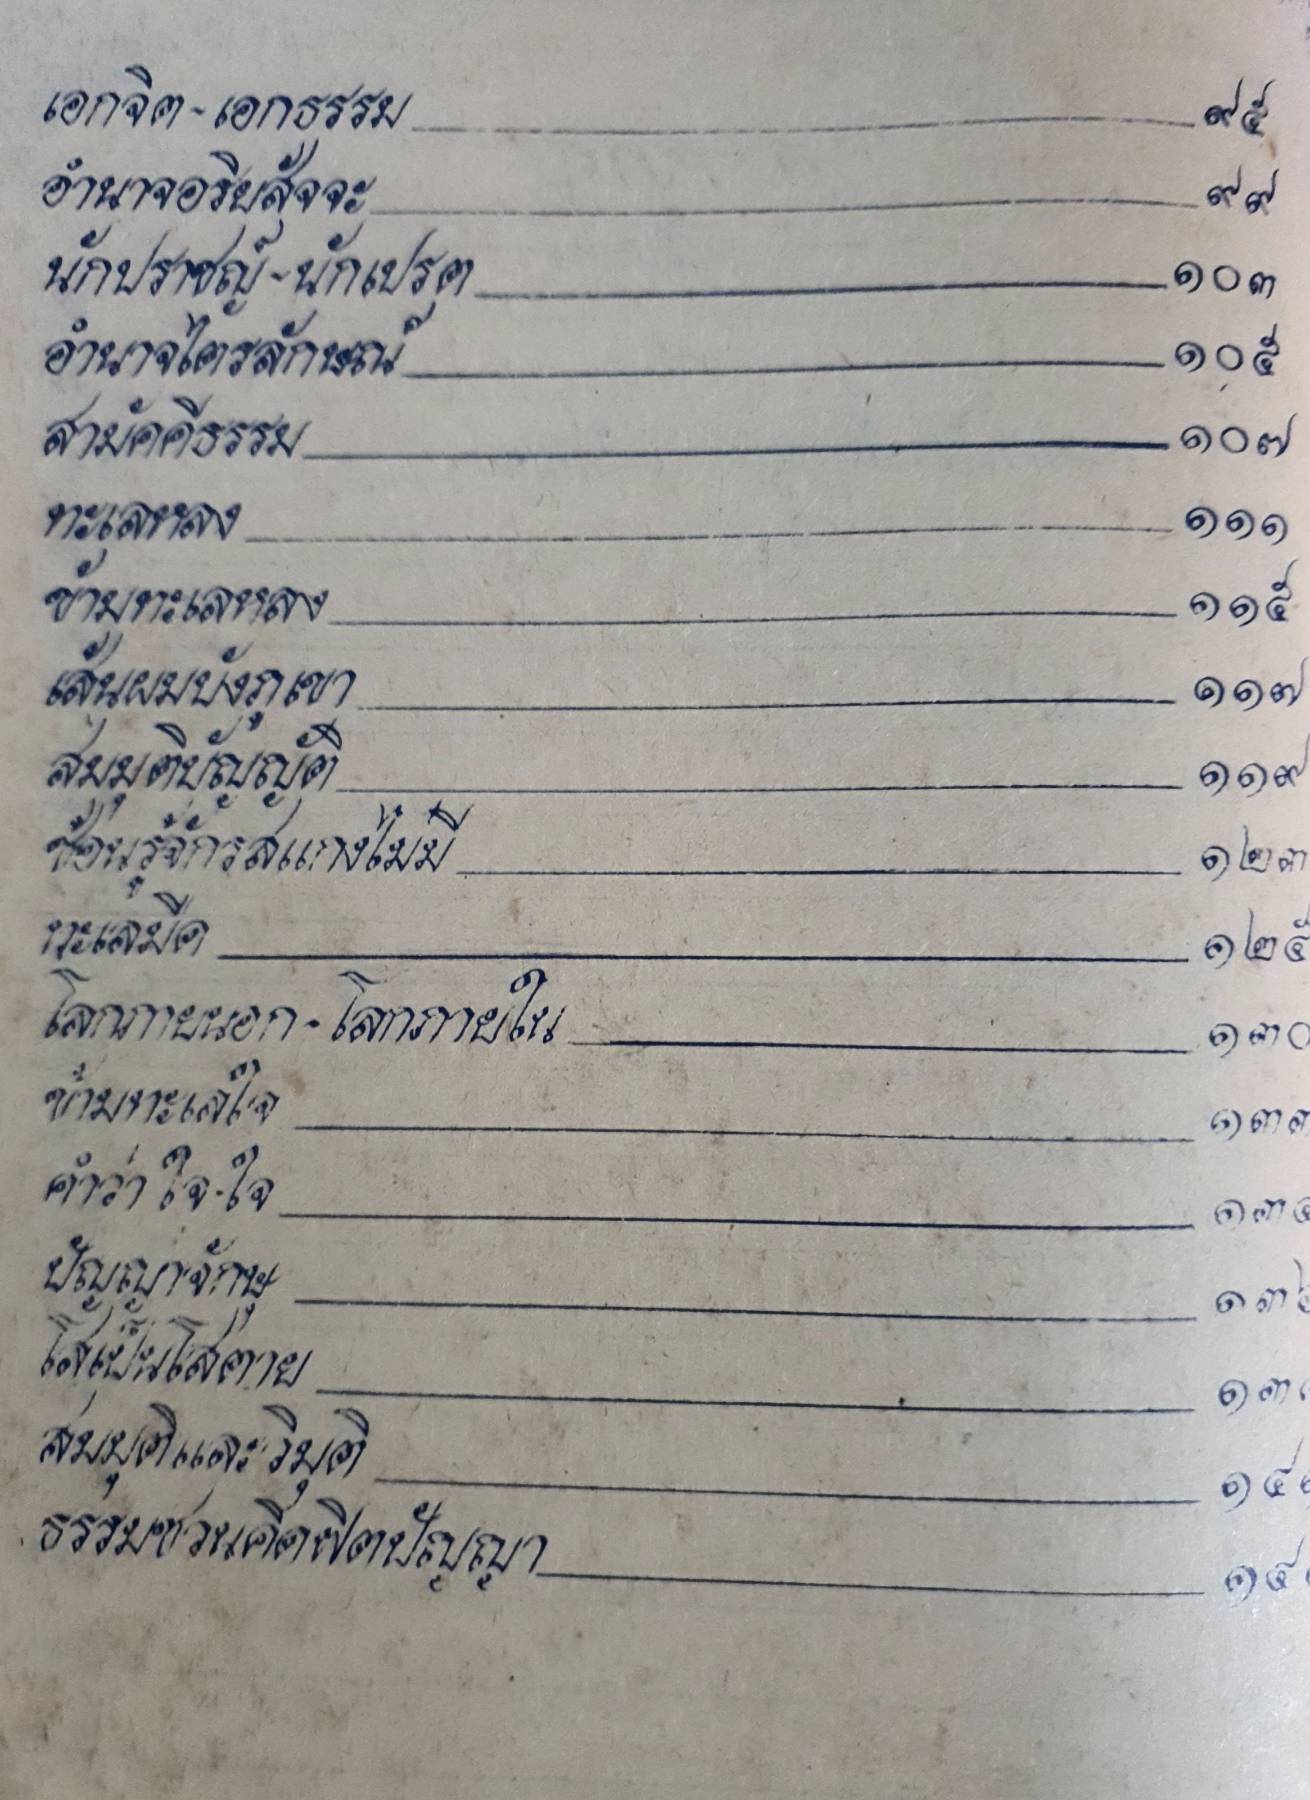 เอกจิต - เอกธรรม ๙๕
อำนาจอริยสัจจะ ๙๙
นักปราชญ์ - นักเปรต ๑๐๓
อำนาจไตรลักษณ์ ๑๐๕
สามัคคีธรรม ๑๐๗
ทะเลหลง ๑๑๑
ข้ามทะเลหลง ๑๑๕
เส้นผมบังภูเขา ๑๑๗
สมมุติบัญญัติ ๑๑๙
ช้อนรู้จักรสแกงไม่มี ๑๒๓
ทะเลมืด ๑๒๕
โลกภายนอก - โลกภายใน ๑๓๐
ข้ามทะเลใจ ๑๓๓
คำว่า ใจ-ใจ
ปัญญาจักษุ
โสเป็นโสตาย
สมมุติและวิมุติ
ธรรมชวนคิดฟิตปัญญา